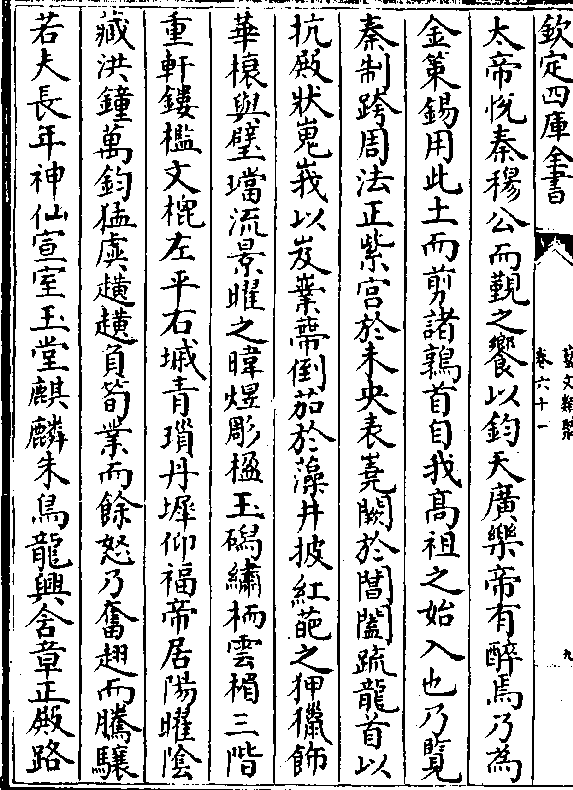 欽定四庫全書
藝文類聚
卷六十一
九
太帝悅秦穆公而覲之饗以鈞天廣樂帝有醉焉乃為
金策錫用此土而剪諸鶉首自我髙祖之始入也乃覽
秦制跨周法正紫宮於未央表嶤闕於閶闔疏龍首以
抗殿狀嵬峩以岌嶪蔕倒茄於藻井披紅葩之狎獵飾
華榱與璧璫流景曜之暐煜彫楹玉磶繡栭雲楣三階
重軒鏤檻文㮰左平右墄青瑣丹墀仰福帝居陽曜陰
藏洪鐘萬鈞猛虡趪趪負筍業而餘怒乃奮翅而騰驤
若夫長年神仙宣室玉堂麒麟朱鳥龍興含章正殿路